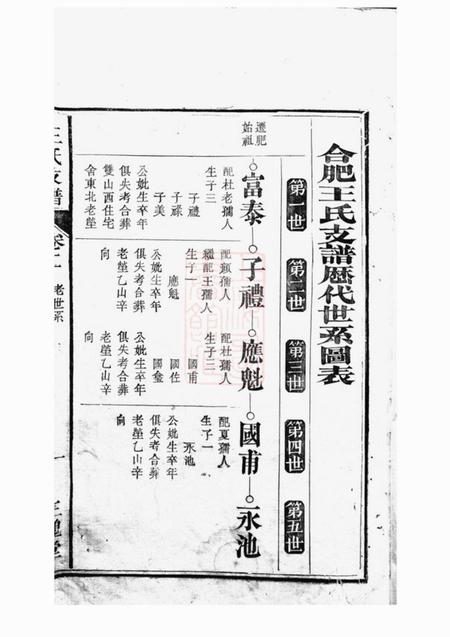 合肥王氏支譜歷代世系圖表
第一世
第二世
第三世
第四世
第五世
遷肥
始祖
富泰
子禮
應魁
國甫
永池
配杜老孺人
生子三
子禮
子祿
子美
公妣生卒年
俱失考合葬
雙山西住宅
舍東北老塋
配顏孺人
繼配王孺人
生子一
應魁
公妣生卒年
俱失考合葬
老塋乙山辛
向
配杜孺人
生子三
國甫
國佐
國璽
公妣生卒年
俱失考合葬
老塋乙山辛
向
配夏孺人
生子一
永池
公妣生卒年
俱失考合葬
老塋乙山辛
向
王氏支譜
卷二
老世系
一